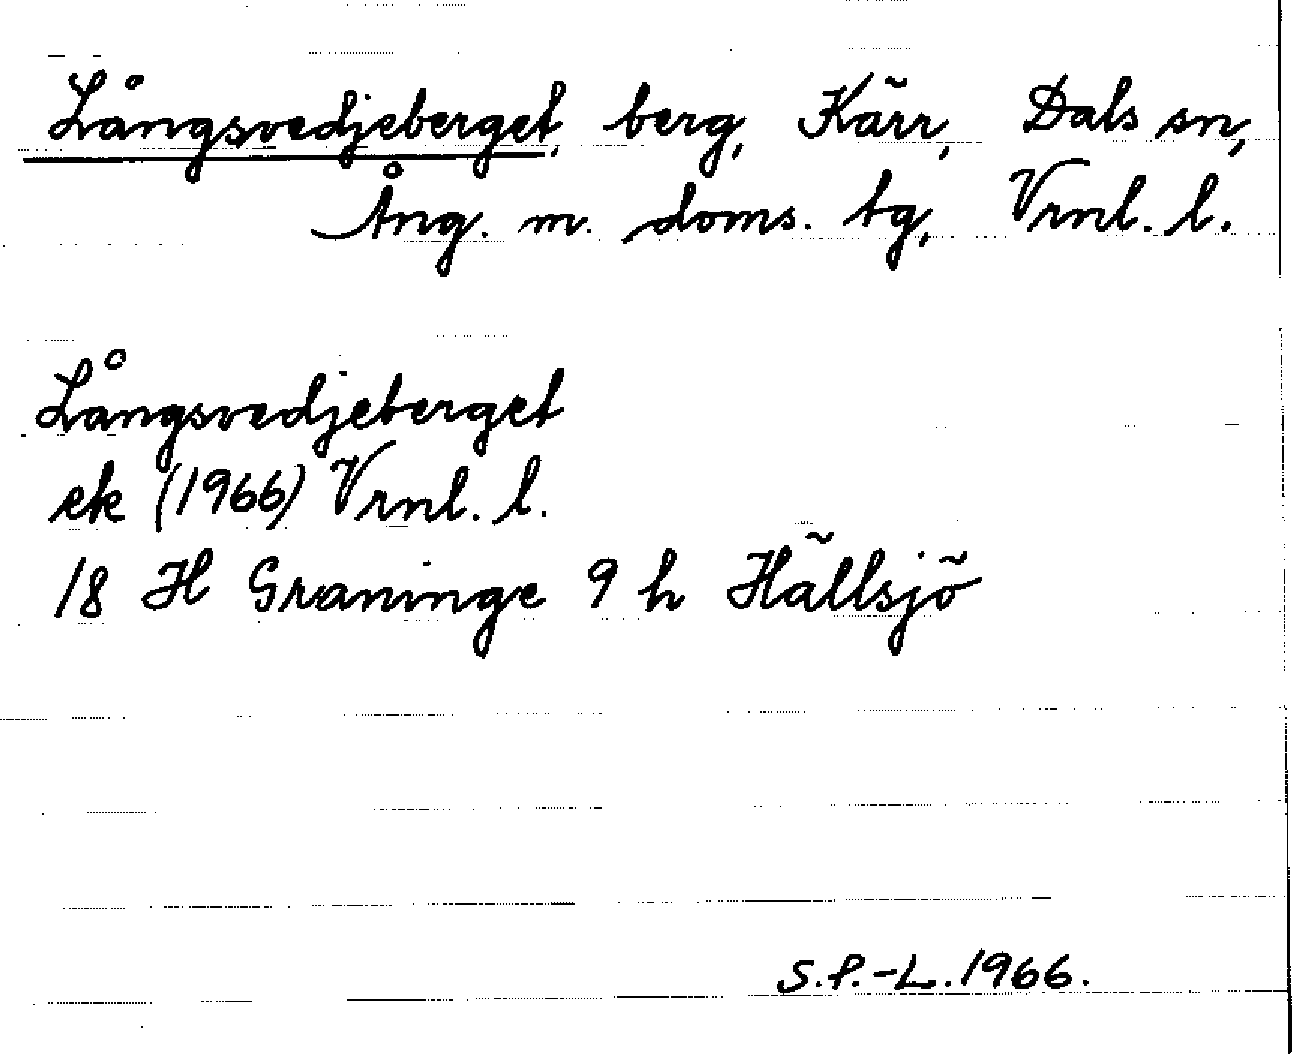 Långsvedjeberget, berg, Kärr, Dals sn,
Ång. m. doms. tg, Vrnl. l.
Långsvedjeberget
ek (1966) Vrnl. l.
18 H Graninge 9 h Hällsjö
S.P.-L. 1966.